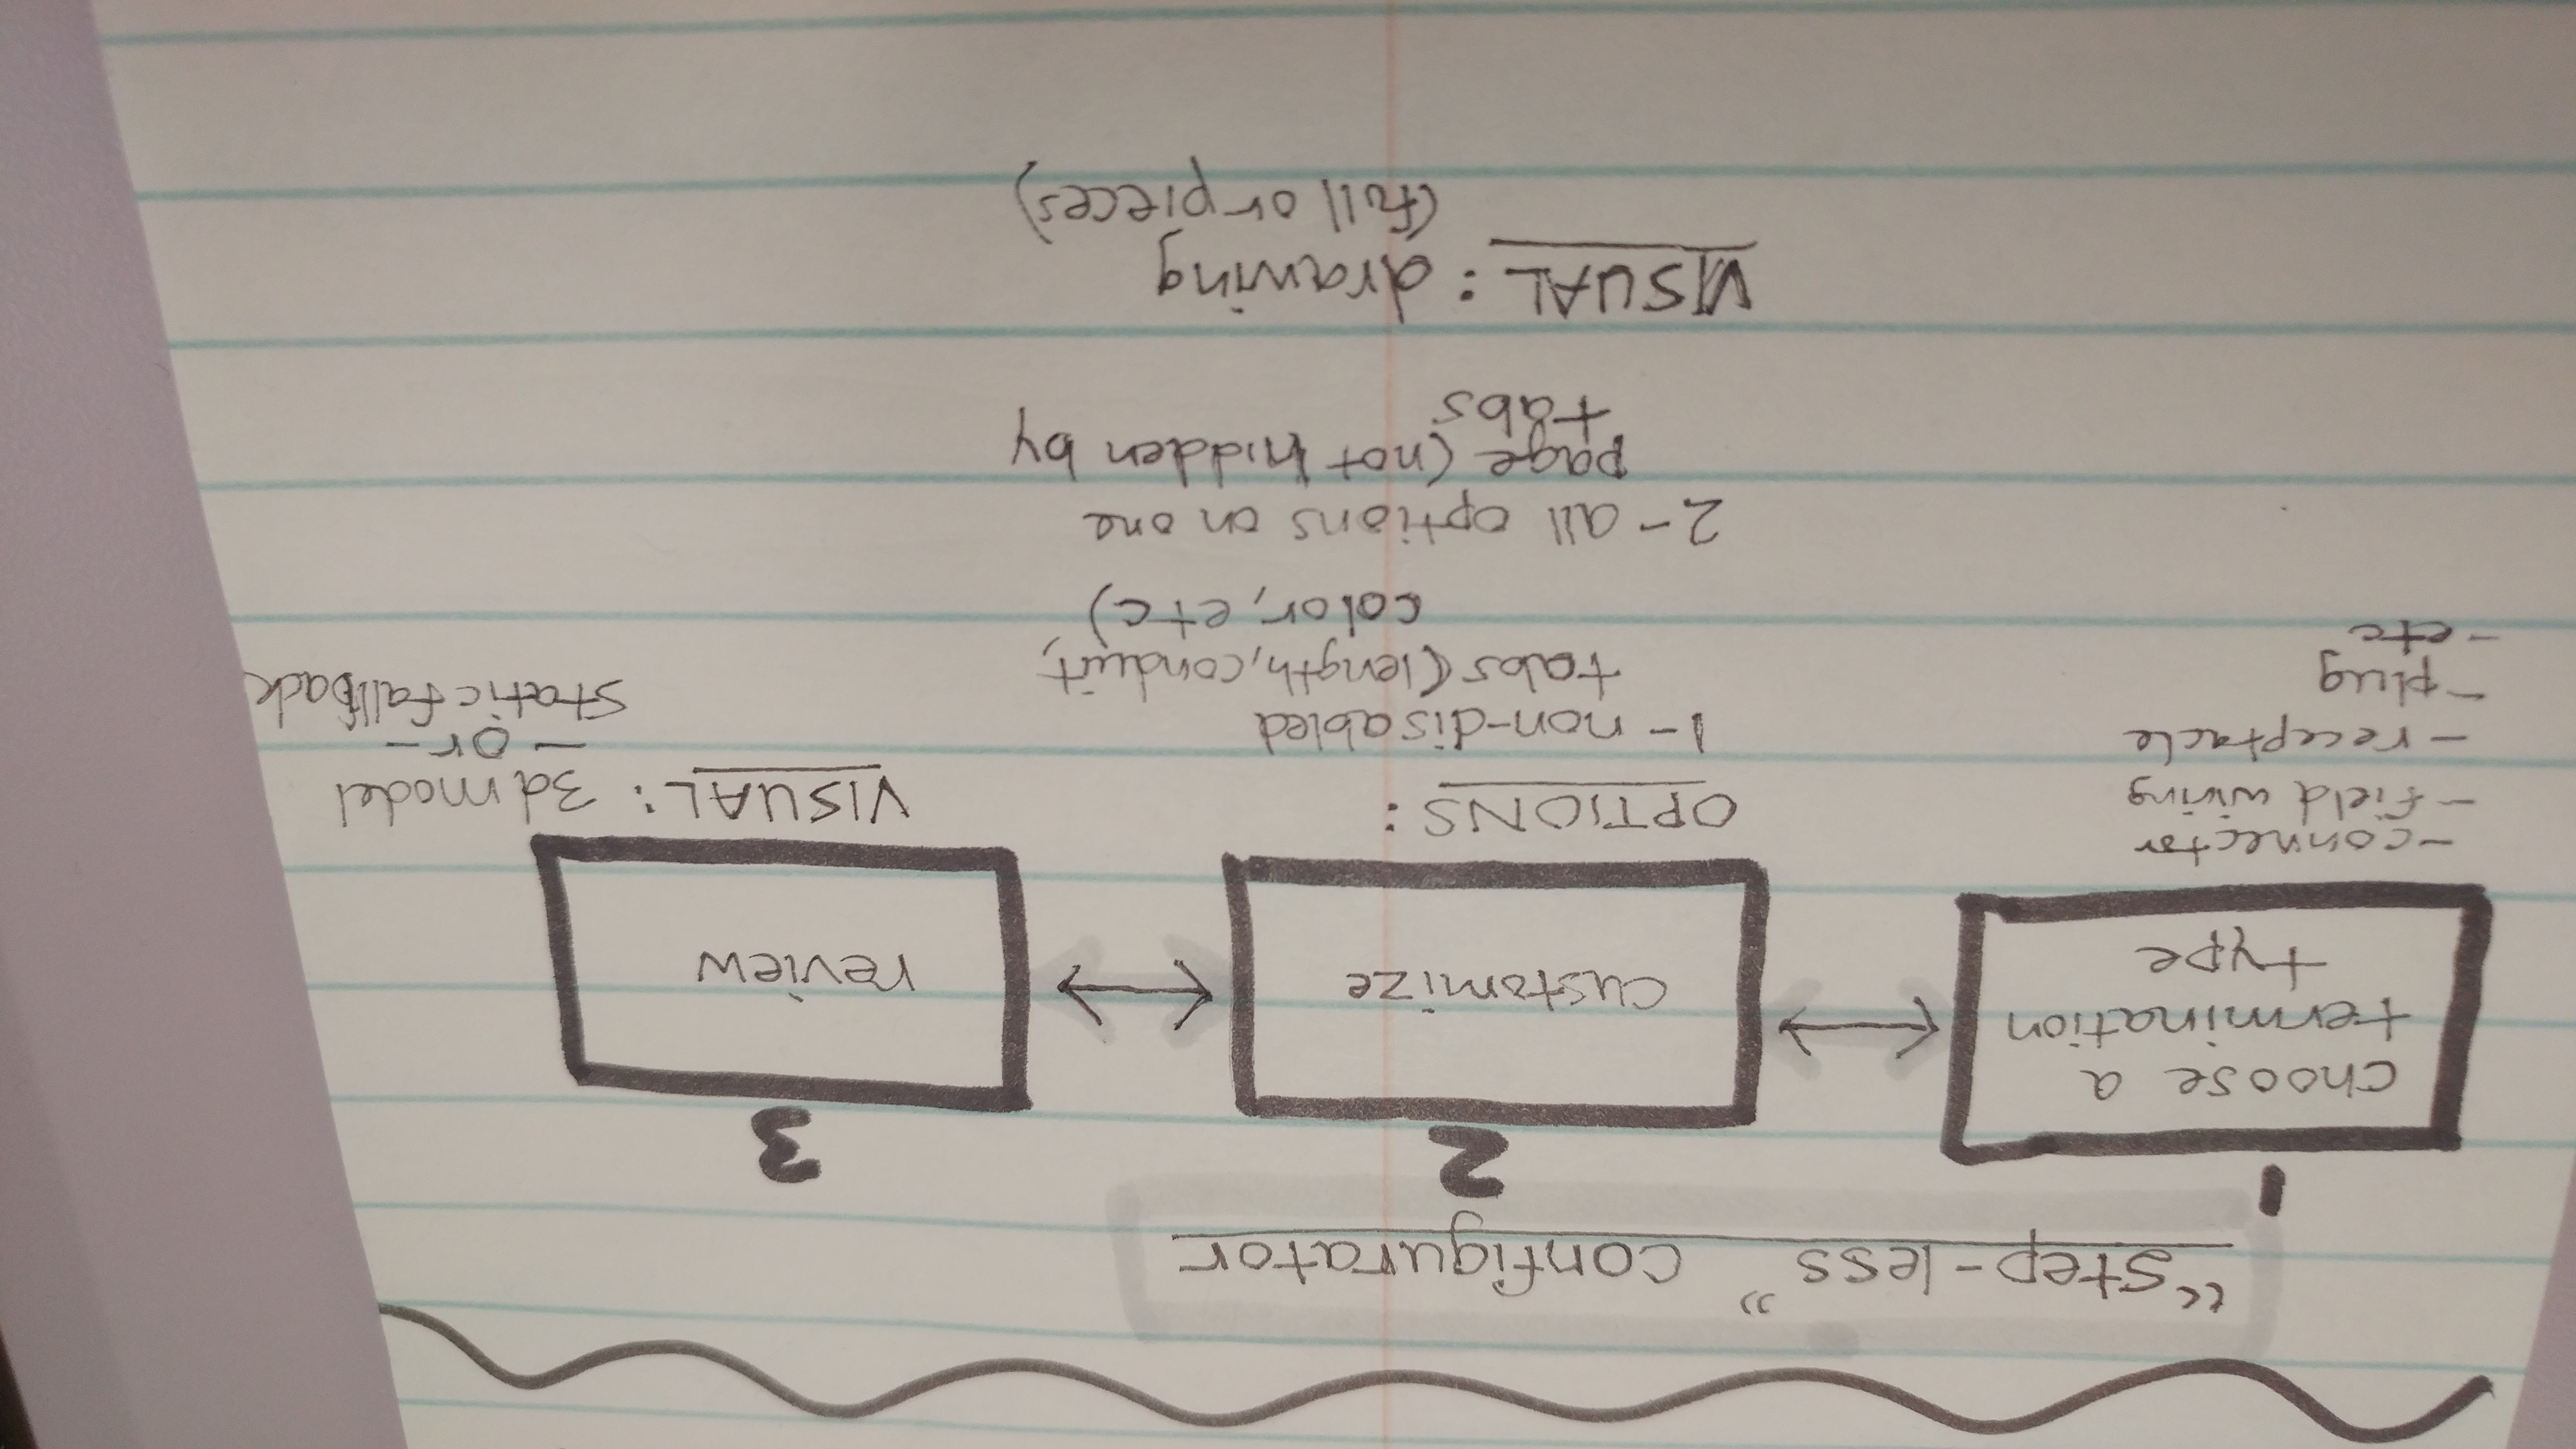 “step-less” configurator
1
choose a
termination
type
- connector
- field wiring
- receptacle
- plug
- etc
2
customize
OPTIONS:
1- non-disabled
tabs (length, conduit,
color, etc)
2- all options on one
page (not hidden by
tabs
VISUAL: drawing
(full or pieces)
3
review
VISUAL: 3d model
- or -
static fallback